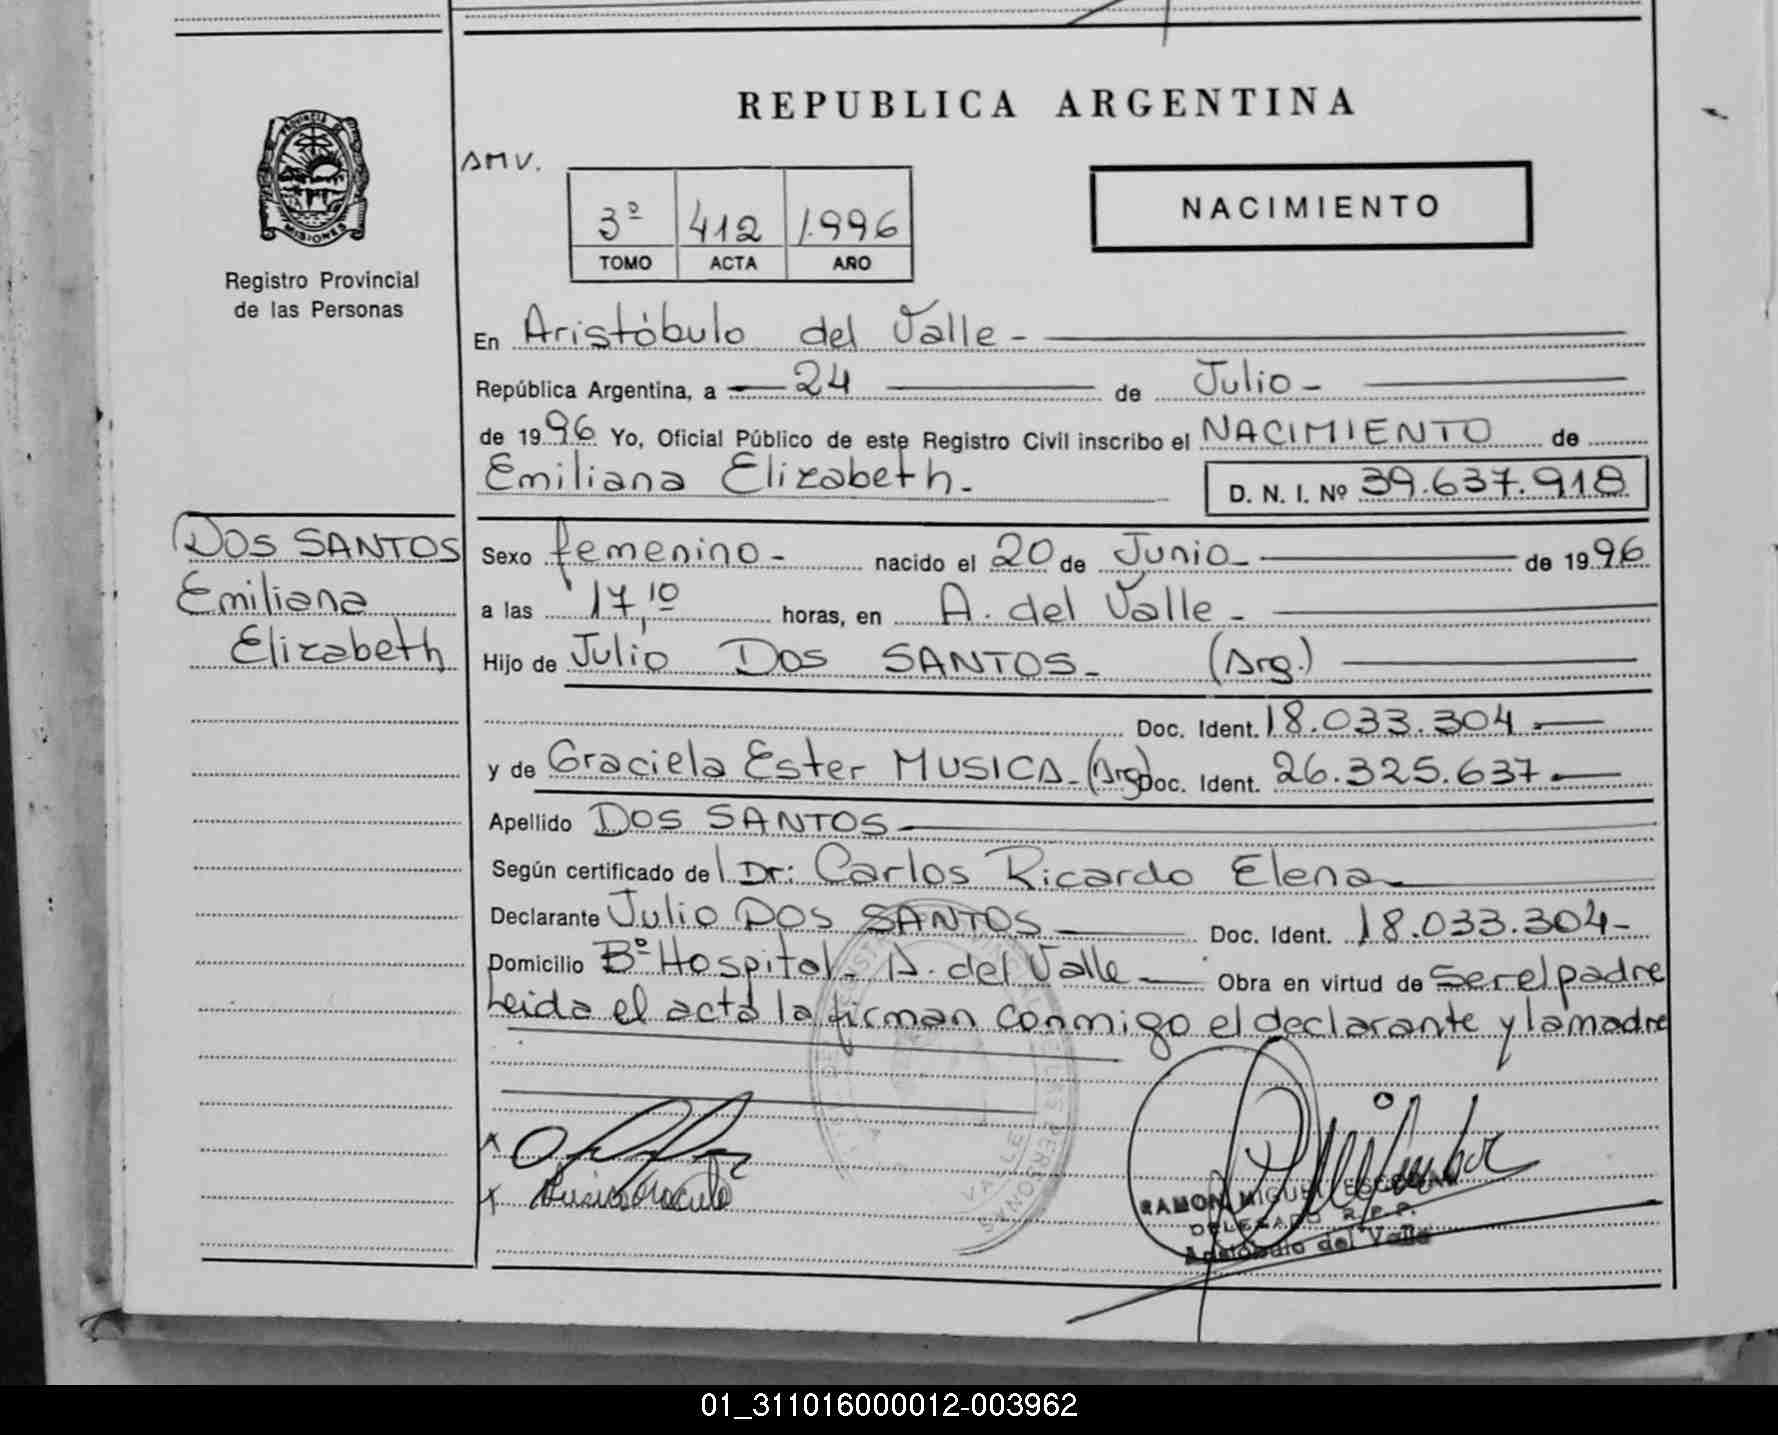 REPUBLICA ARGENTINA
PROVINCIA DE
MISIONES
Registro Provincial
de las Personas
AMV.
3º 412 1.996
TOMO ACTA AÑO
NACIMIENTO
En Aristóbulo del Valle -
República Argentina, a 24 de Julio -
de 1996 Yo, Oficial Público de este Registro Civil inscribo el NACIMIENTO de
Emiliana Elizabeth. -
D. N. I. Nº 39.637.918
DOS SANTOS
Emiliana
Elizabeth
Sexo femenino - nacido el 20 de Junio - de 1996
a las 17,10 horas, en A. del Valle -
Hijo de Julio DOS SANTOS - (Arg.)
Doc. Ident. 18.033.304
y de Graciela Ester MUSICA - (Arg) Doc. Ident. 26.325.637
Apellido DOS SANTOS
Según certificado del Dr: Carlos Ricardo Elena
Declarante Julio DOS SANTOS Doc. Ident. 18.033.304 -
Domicilio Bº Hospital - A. del Valle Obra en virtud de ser el padre
Leida el acta la firman conmigo el declarante y la madre
VALLE
PERSONAS
RAMON MIGUEL ESCOBAR
DELEGADO R.P.P.
Aristóbulo del Valle
01_311016000012-003962